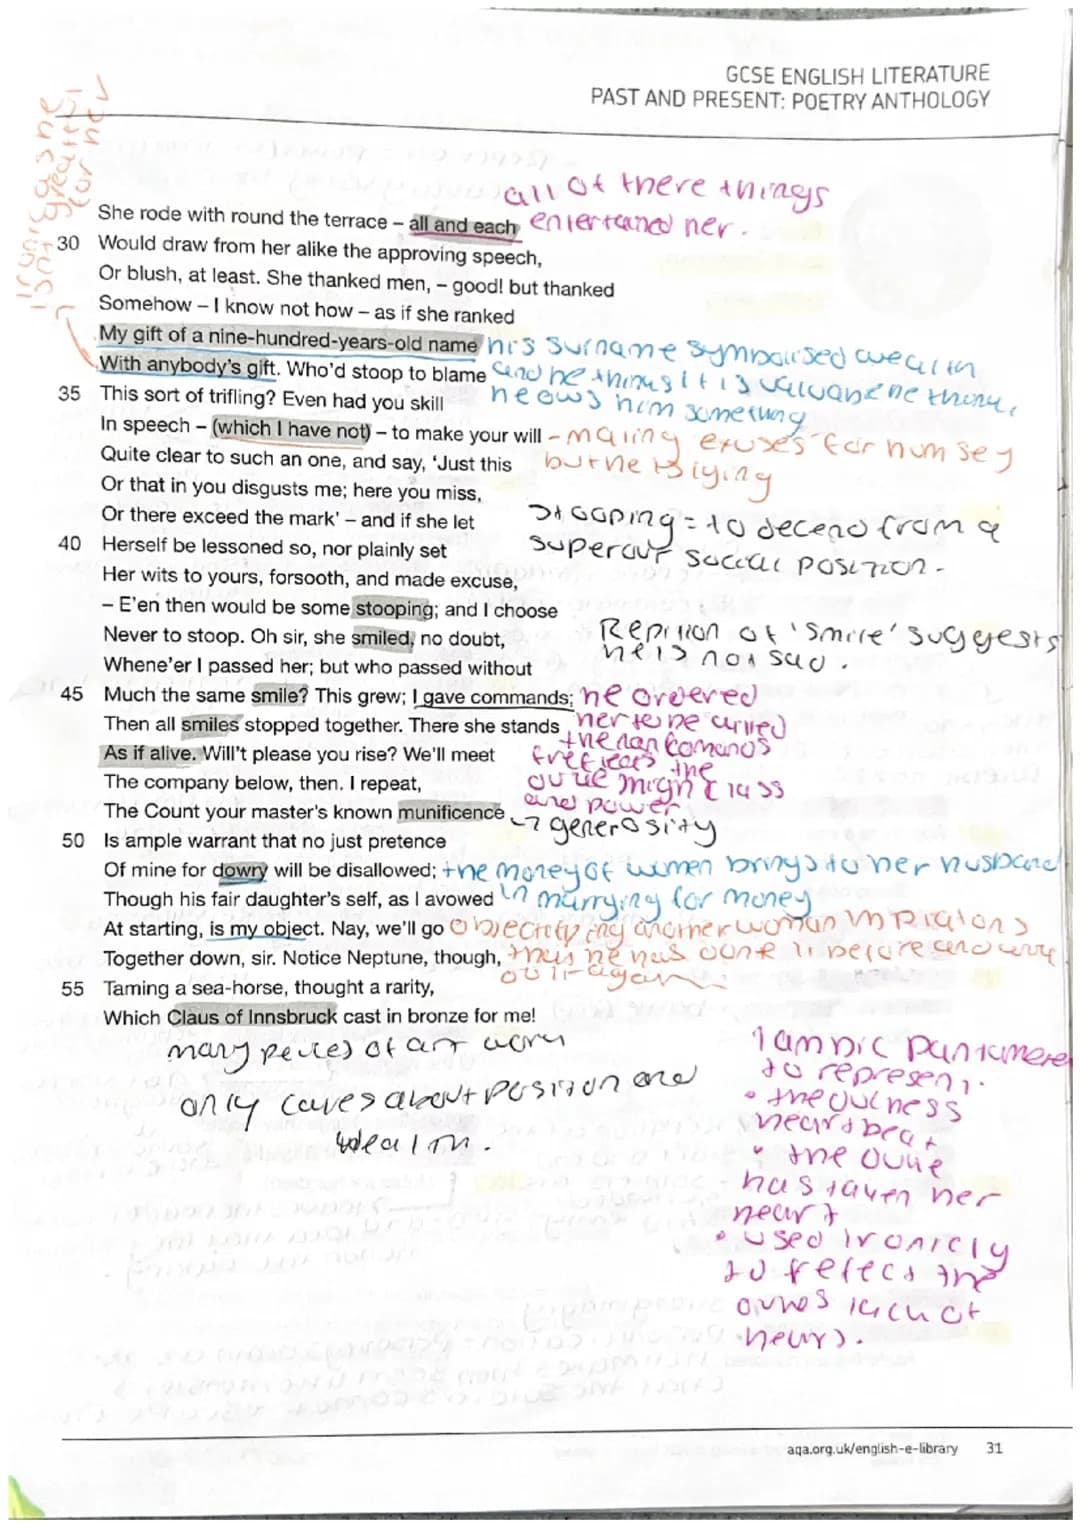 GCSE ENGLISH LITERATURE
PAST AND PRESENT: POETRY ANTHOLOGY
all of there things
She rode with round the terrace – all and each entertained her.
30 Would draw from her alike the approving speech,
Or blush, at least. She thanked men, – good! but thanked
Somehow – I know not how – as if she ranked
My gift of a nine-hundred-years-old name his surname symbolised wealth
With anybody's gift. Who'd stoop to blame and he thinks it is
35 This sort of trifling? Even had you skill he ows him something
In speech – (which I have not) – to make your will - making exuses for himself
Quite clear to such an one, and say, 'Just this but he is lying
Or that in you disgusts me; here you miss,
Or there exceed the mark' – and if she let stooping = to decend from a
40 Herself be lessoned so, nor plainly set superour social position.
Her wits to yours, forsooth, and made excuse,
– E'en then would be some stooping; and I choose
Never to stoop. Oh sir, she smiled, no doubt, Repition of 'smile' suggests
Whene'er I passed her; but who passed without he is not sad.
45 Much the same smile? This grew; I gave commands; he ordered
Then all smiles stopped together. There she stands her to be killed
As if alive. Will't please you rise? We'll meet the
The company below, then. I repeat, high class
The Count your master's known munificence and power
generosity
50 Is ample warrant that no just pretence
Of mine for dowry will be disallowed; the money of women brings to her husband
Though his fair daughter's self, as I avowed in marrying for money
At starting, is my object. Nay, we'll go Objectifying another woman
Together down, sir. Notice Neptune, though, he has done it before and will
do it again
55 Taming a sea-horse, thought a rarity,
Which Claus of Innsbruck cast in bronze for me!
many peices of art work
only cares about position and
wealth.
Iambic pantameter
to represent:
heartbeat
• the duke
has taken her
heart
• used ironicly
to reflect the
lack of
heart.
aqa.org.uk/english-e-library 31